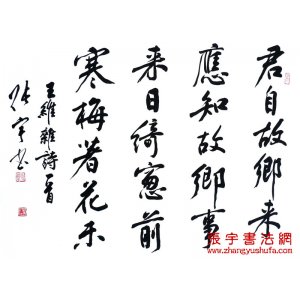 君自故鄉来
應知故鄉事
来日綺窓前
寒梅著花未
王維雜詩一首
張宇書
張宇書法網
www.zhangyushufa.com